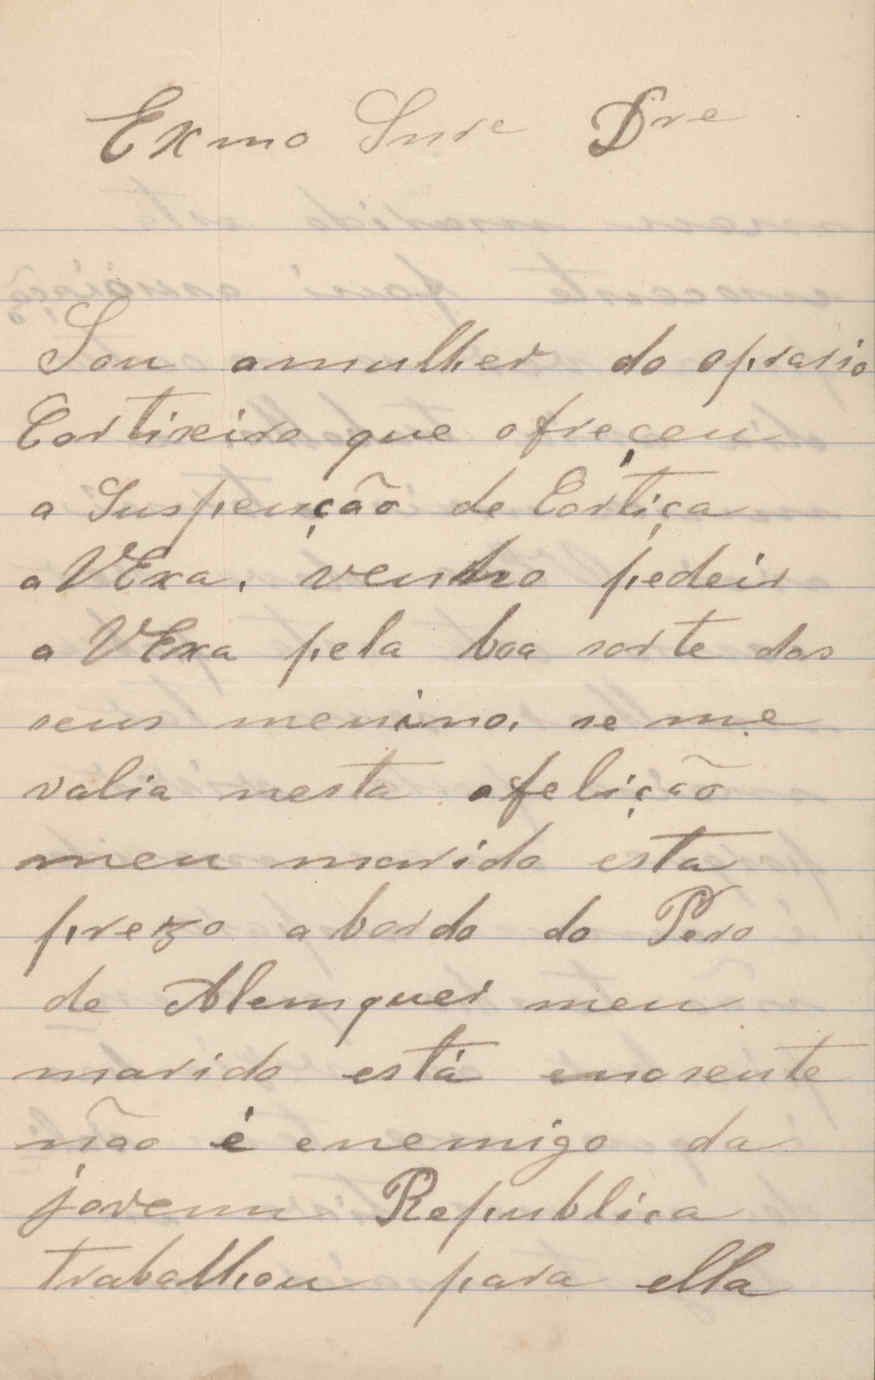 Exmo Snre Dre
Sou amulher do oprario
Cortixeiro que ofreçeu
a Suspenção de Cortiça
a VExa. venho pedeir
a VExa pela boa sorte dos
seus menino. se me
valia nesta afelição
meu marido esta
prezo abordo do Pero
de Alemquer meu
marido está enosente
não é enemigo da
jovem Republica
trabalhou para ella